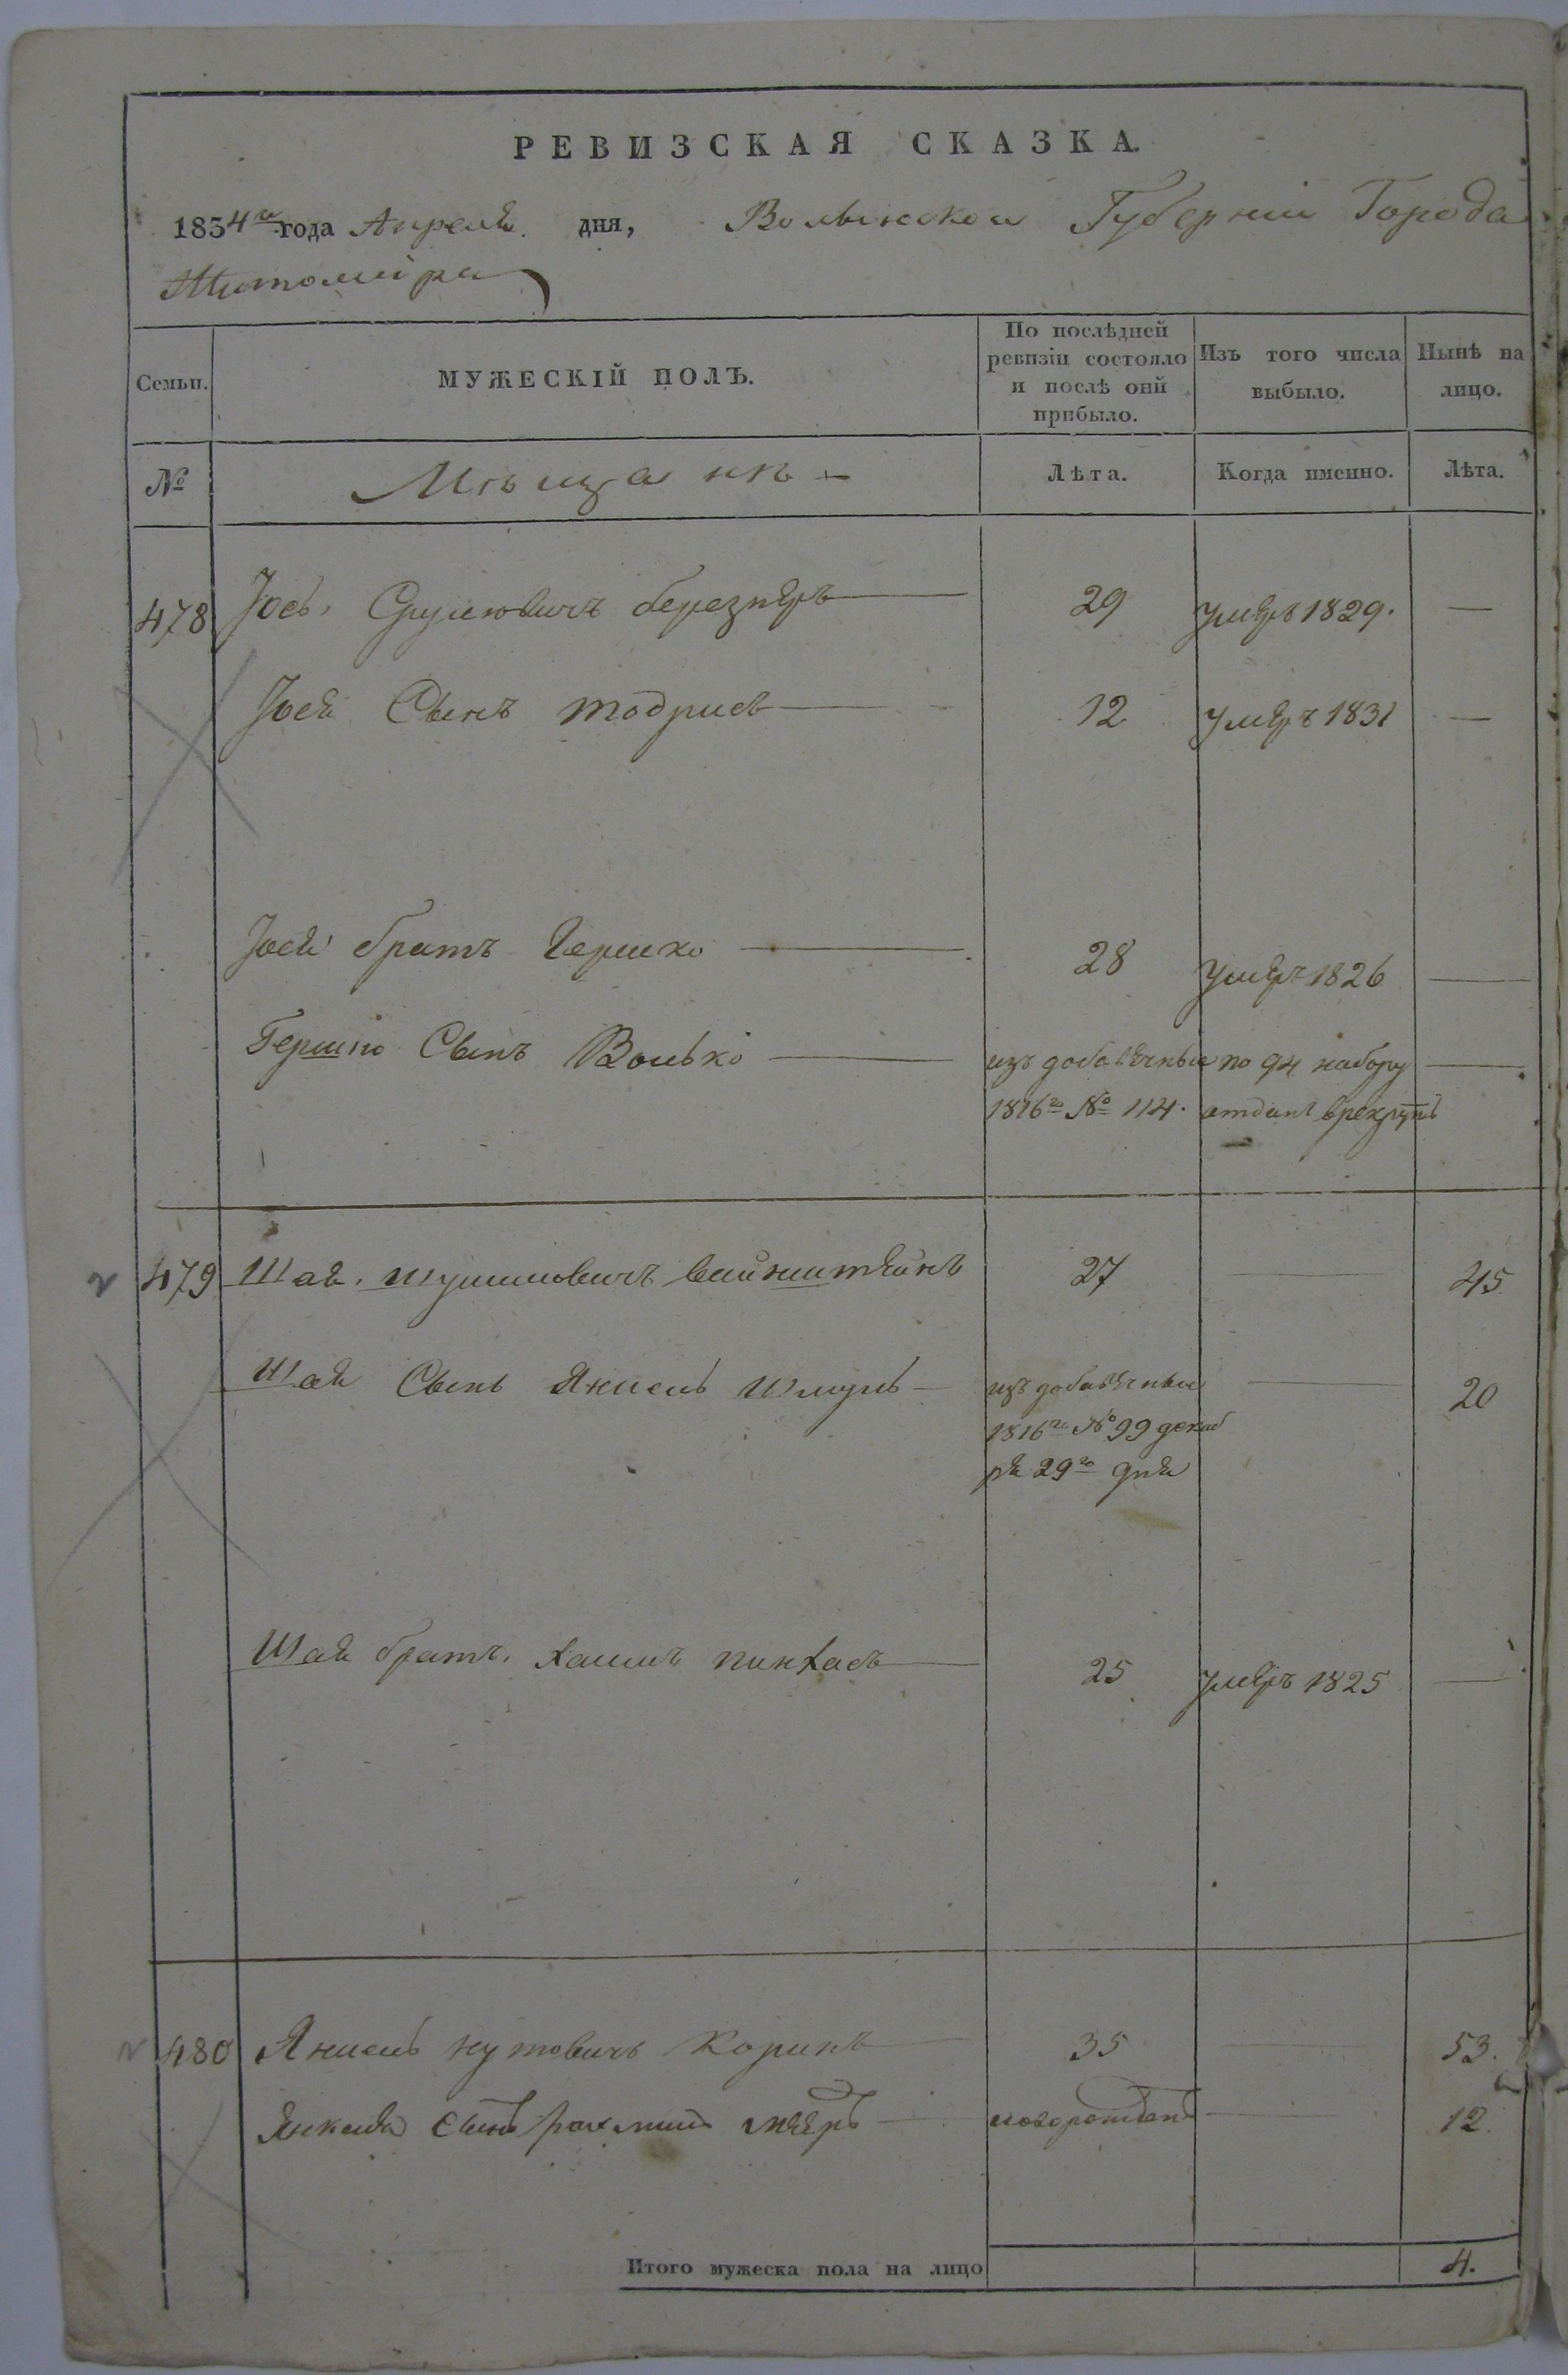 РЕВИЗСКАЯ СКАЗКА.
1834го года Апреля дня, Волынской Губернии Города
Житомира
Семьи.
МУЖЕСКІЙ ПОЛЪ.
По послѣдней ревизіи состояло и послѣ оній прибыло.
Изъ того числа выбыло.
Нынѣ на лицо.
№
Мѣщанъ
Лѣта.
Когда именно.
Лѣта.
478 Іось Срулювичъ березнеръ 29 умеръ 1829. —
Іося Сынъ тодрисъ 12 умеръ 1831 —
Іося братъ Гершко 28 умеръ 1826 —
Гершко Сынъ Волько изъ добавочныи по 94 набору —
1816го № 114. отданъ врекруты
479 Шая шулимовичъ вайнштейнъ 27 — 45
Шая Сынъ Янкель шмуль изъ добавочныи — 20
1816го № 99 декаб
ря 29го дня
Шая братъ Хаимъ пинхасъ 25 умеръ 1825 —
480 Янкель нутовичъ Коринъ 35 — 53.
Янкеля Сынъ рахмиль мееръ новорожденъ — 12.
Итого мужеска пола на лицо 4.